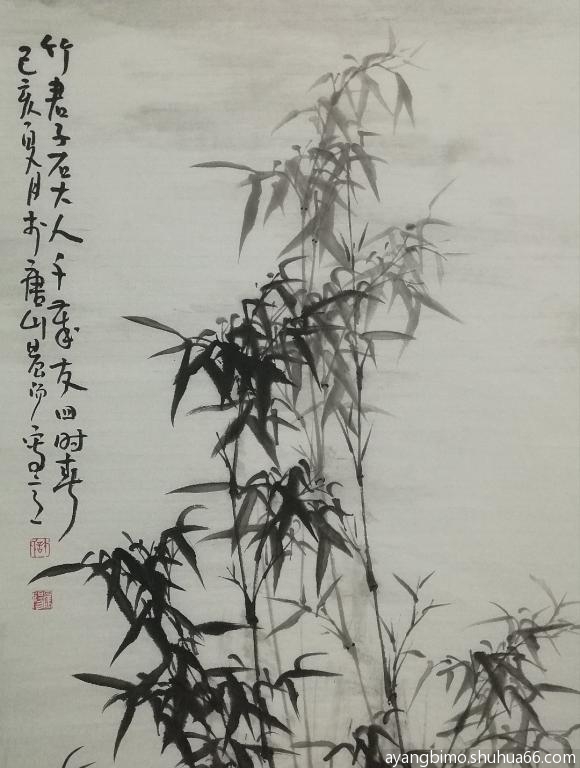 竹君子石大人千岁友四时春
己亥夏月于唐山景沂写之
ayangbimo.shuhua66.com